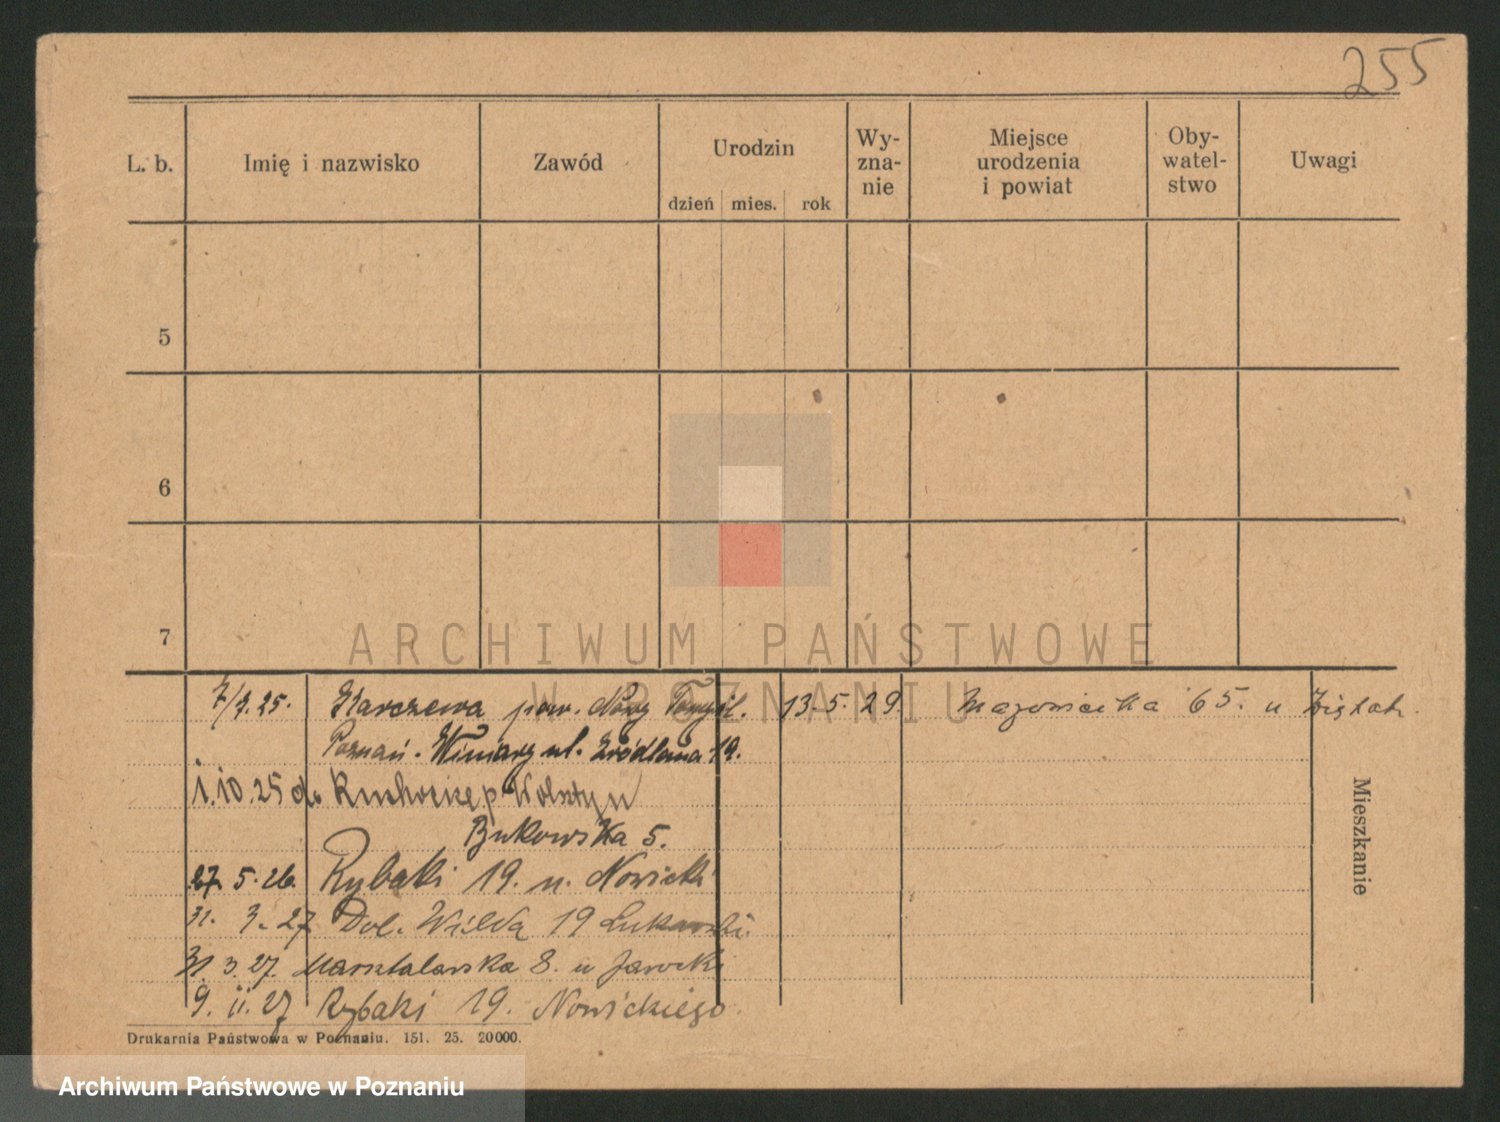 255
L. b. Imię i nazwisko Zawód Urodzin dzień mies. rok Wy-zna-nie Miejsce urodzenia i powiat Oby-watel-stwo Uwagi
5
6
7
ARCHIWUM PAŃSTWOWE
W POZNANIU
7/7.25. pow. Nowy Tomyśl. 13.5.29. 65. u
Poznań. Winiary ul. Źródlana 19.
1.10.25 do p Wolsztyn
Bukowska 5.
27.5.26. Rybaki 19. u. Nowicki
31. 3. 27 Dol. Wilda 19
31 3. 27. Marsztalarska 8. u Jarocki
9. 11. 27 Rybaki 19. Nowickiego.
Mieszkanie
Drukarnia Państwowa w Poznaniu. 151. 25. 20000.
Archiwum Państwowe w Poznaniu